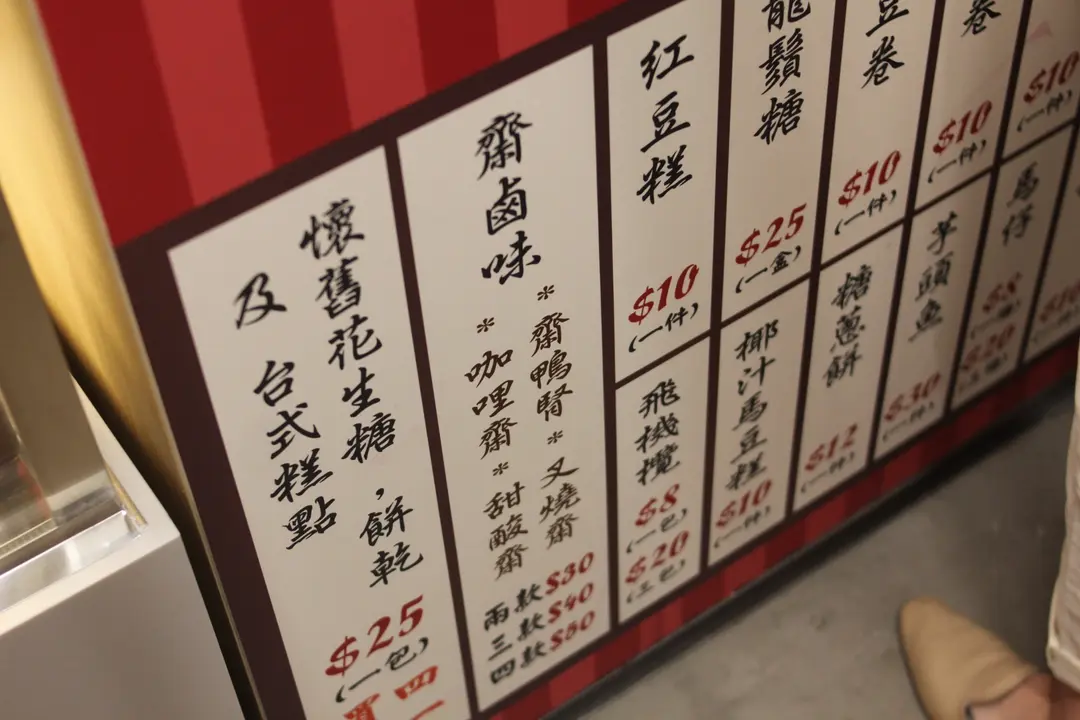 懷舊花生糖，餅乾
及 台式糕點
$25
(一包)
買四
一
齋鹵味
*齋鴨腎*叉燒齋
*咖哩齋*甜酸齋
兩款$30
三款$40
四款$50
紅豆糕
$10
(一件)
飛機欖
$8
(一包)
$20
(三包)
龍鬚糖
$25
(一盒)
椰汁馬豆糕
$10
(一件)
豆卷
$10
(一件)
糖蔥餅
$12
(一件)
卷
$10
(一件)
芋頭魚
$30
(一件)
$10
(一件)
馬仔
$8
$20